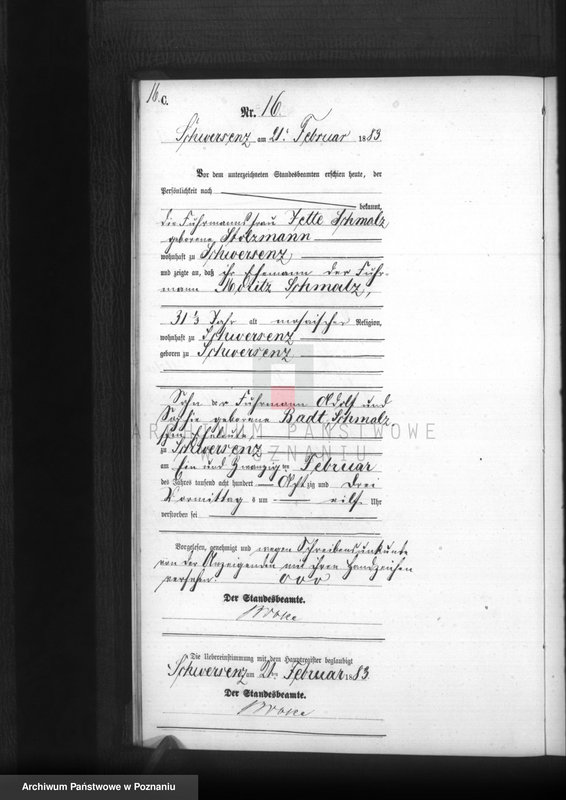 16.
C.
Nr. 16.
Schwersenz am 21. Februar 1883.
Vor dem unterzeichneten Standesbeamten erschien heute, der
Persönlichkeit nach
bekannt,
die Fuhrmannsfrau Jette Schmalz
geborene Stolzmann
wohnhaft zu Schwersenz,
und zeigte an, daß ihr Ehemann der Fuhr-
mann Moritz Schmalz,
31 1/3 Jahr alt, mosaischer Religion,
wohnhaft zu Schwersenz
geboren zu Schwersenz
Sohn der Fuhrmann Adolf und
geborene Badt Schmalz
Eheleute
zu Schwersenz
am Ein und Zwanzigten Februar
des Jahres tausend acht hundert Achtzig und Drei
Vormittags um eilf Uhr
verstorben sei
Vorgelesen, genehmigt und wegen Schreibensunkunde
von der Anzeigenden mit ihren Handzeichen
versehen. ooo
Der Standesbeamte.
Die Uebereinstimmung mit dem Hauptregister beglaubigt
Schwersenz am 21. Februar 1883.
Der Standesbeamte.
ARCHIWUM PAŃSTWOWE
W POZNANIU
Archiwum Państwowe w Poznaniu